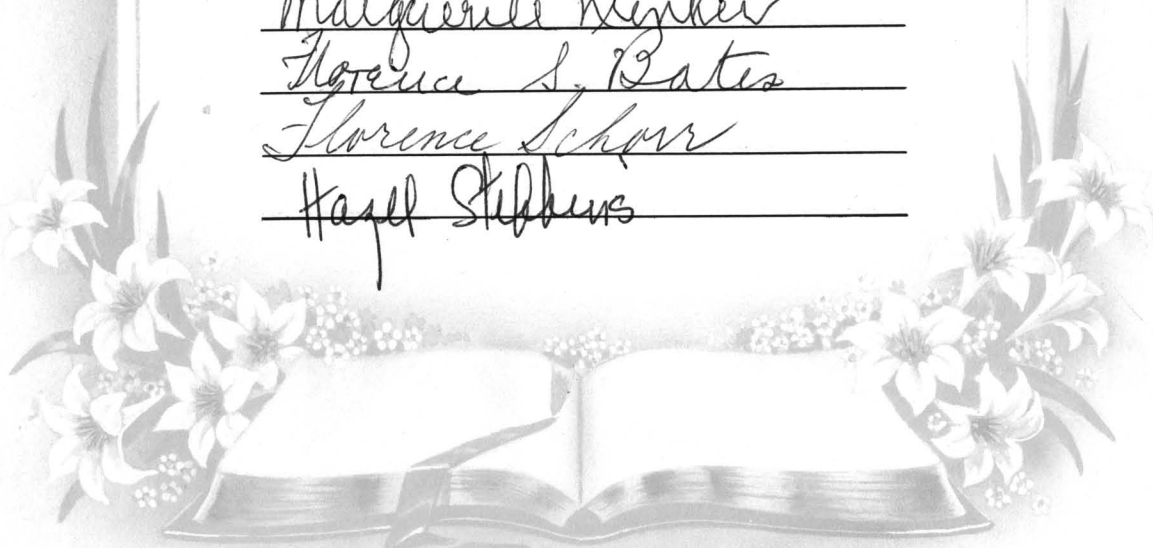 Marguerite
Florence S. Bates
Florence Schorr
Hazel Stebbins